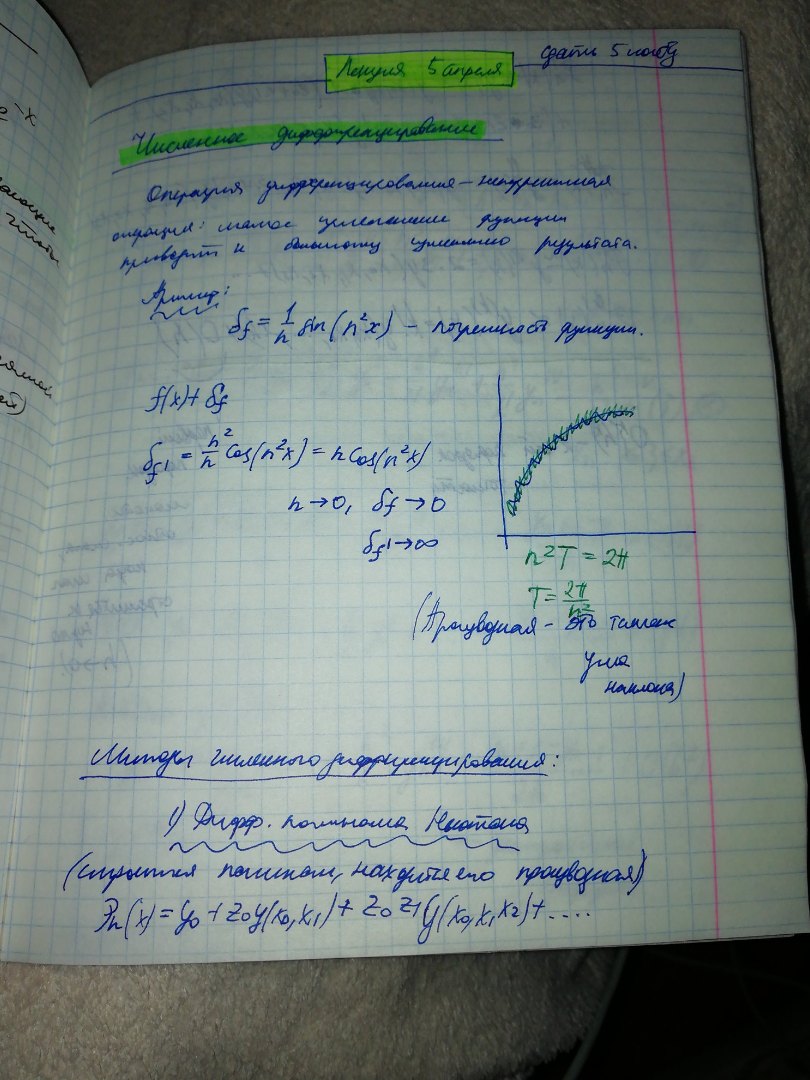 e^-x
Лекция 5 апреля
сдать 5 лабу
Численное дифференцирование
Операция дифференцирования – некорректная
операция: малое изменение функции
приводит к большому изменению результата.
Пример:
δf = 1/n sin(n²x) – погрешность функции.
f(x) + δf
δf' = n²/n cos(n²x) = n cos(n²x)
n → 0, δf → 0
δf' → ∞
n²T = 2π
T = 2π/n²
(Производная – это тангенс
угла
наклона)
Методы численного дифференцирования:
1) Дифф. полинома Ньютона
(строится полином, находится его производная)
Pn(x) = y0 + z0y(x0,x1) + z0z1y(x0,x1,x2) + ....